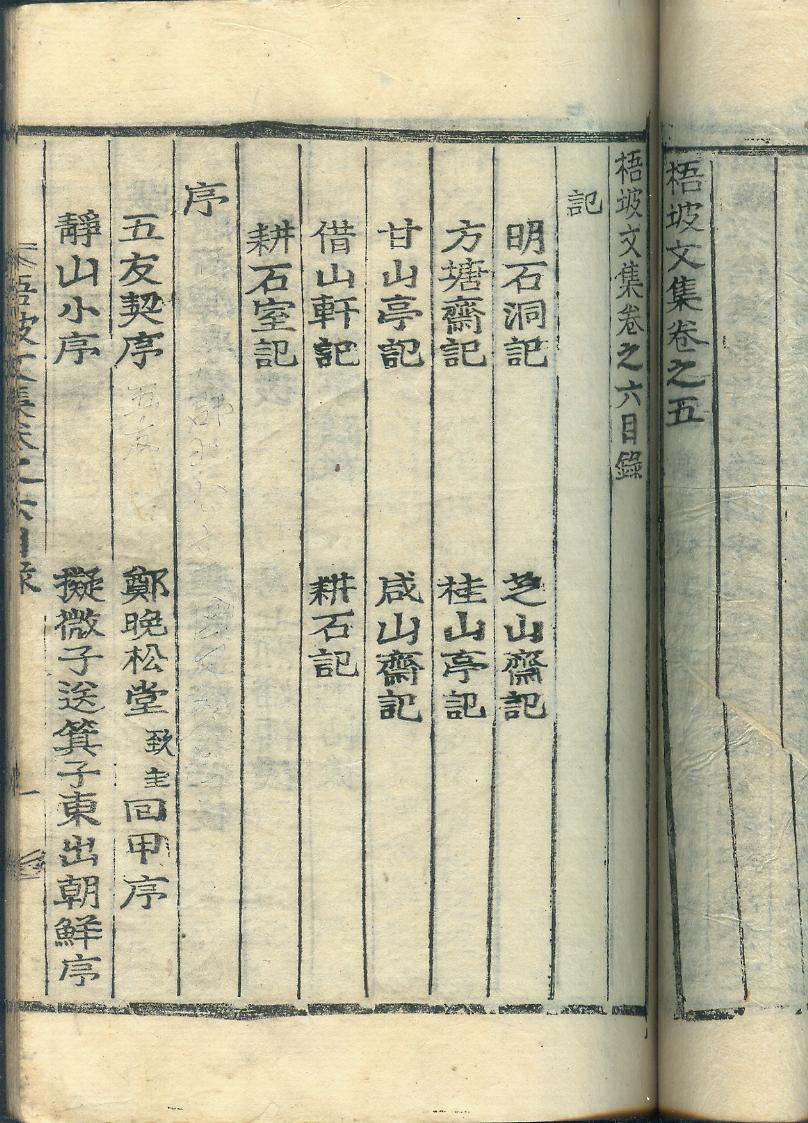 梧坡文集卷之五
梧坡文集卷之六目錄
記
明石洞記 芝山齋記
方塘齋記 桂山亭記
甘山亭記 咸山齋記
借山軒記 耕石記
耕石室記
序
五友契序 鄭晩松堂致圭回甲序
靜山小序 擬微子送箕子東出朝鮮序
梧坡文集卷之六目錄 一